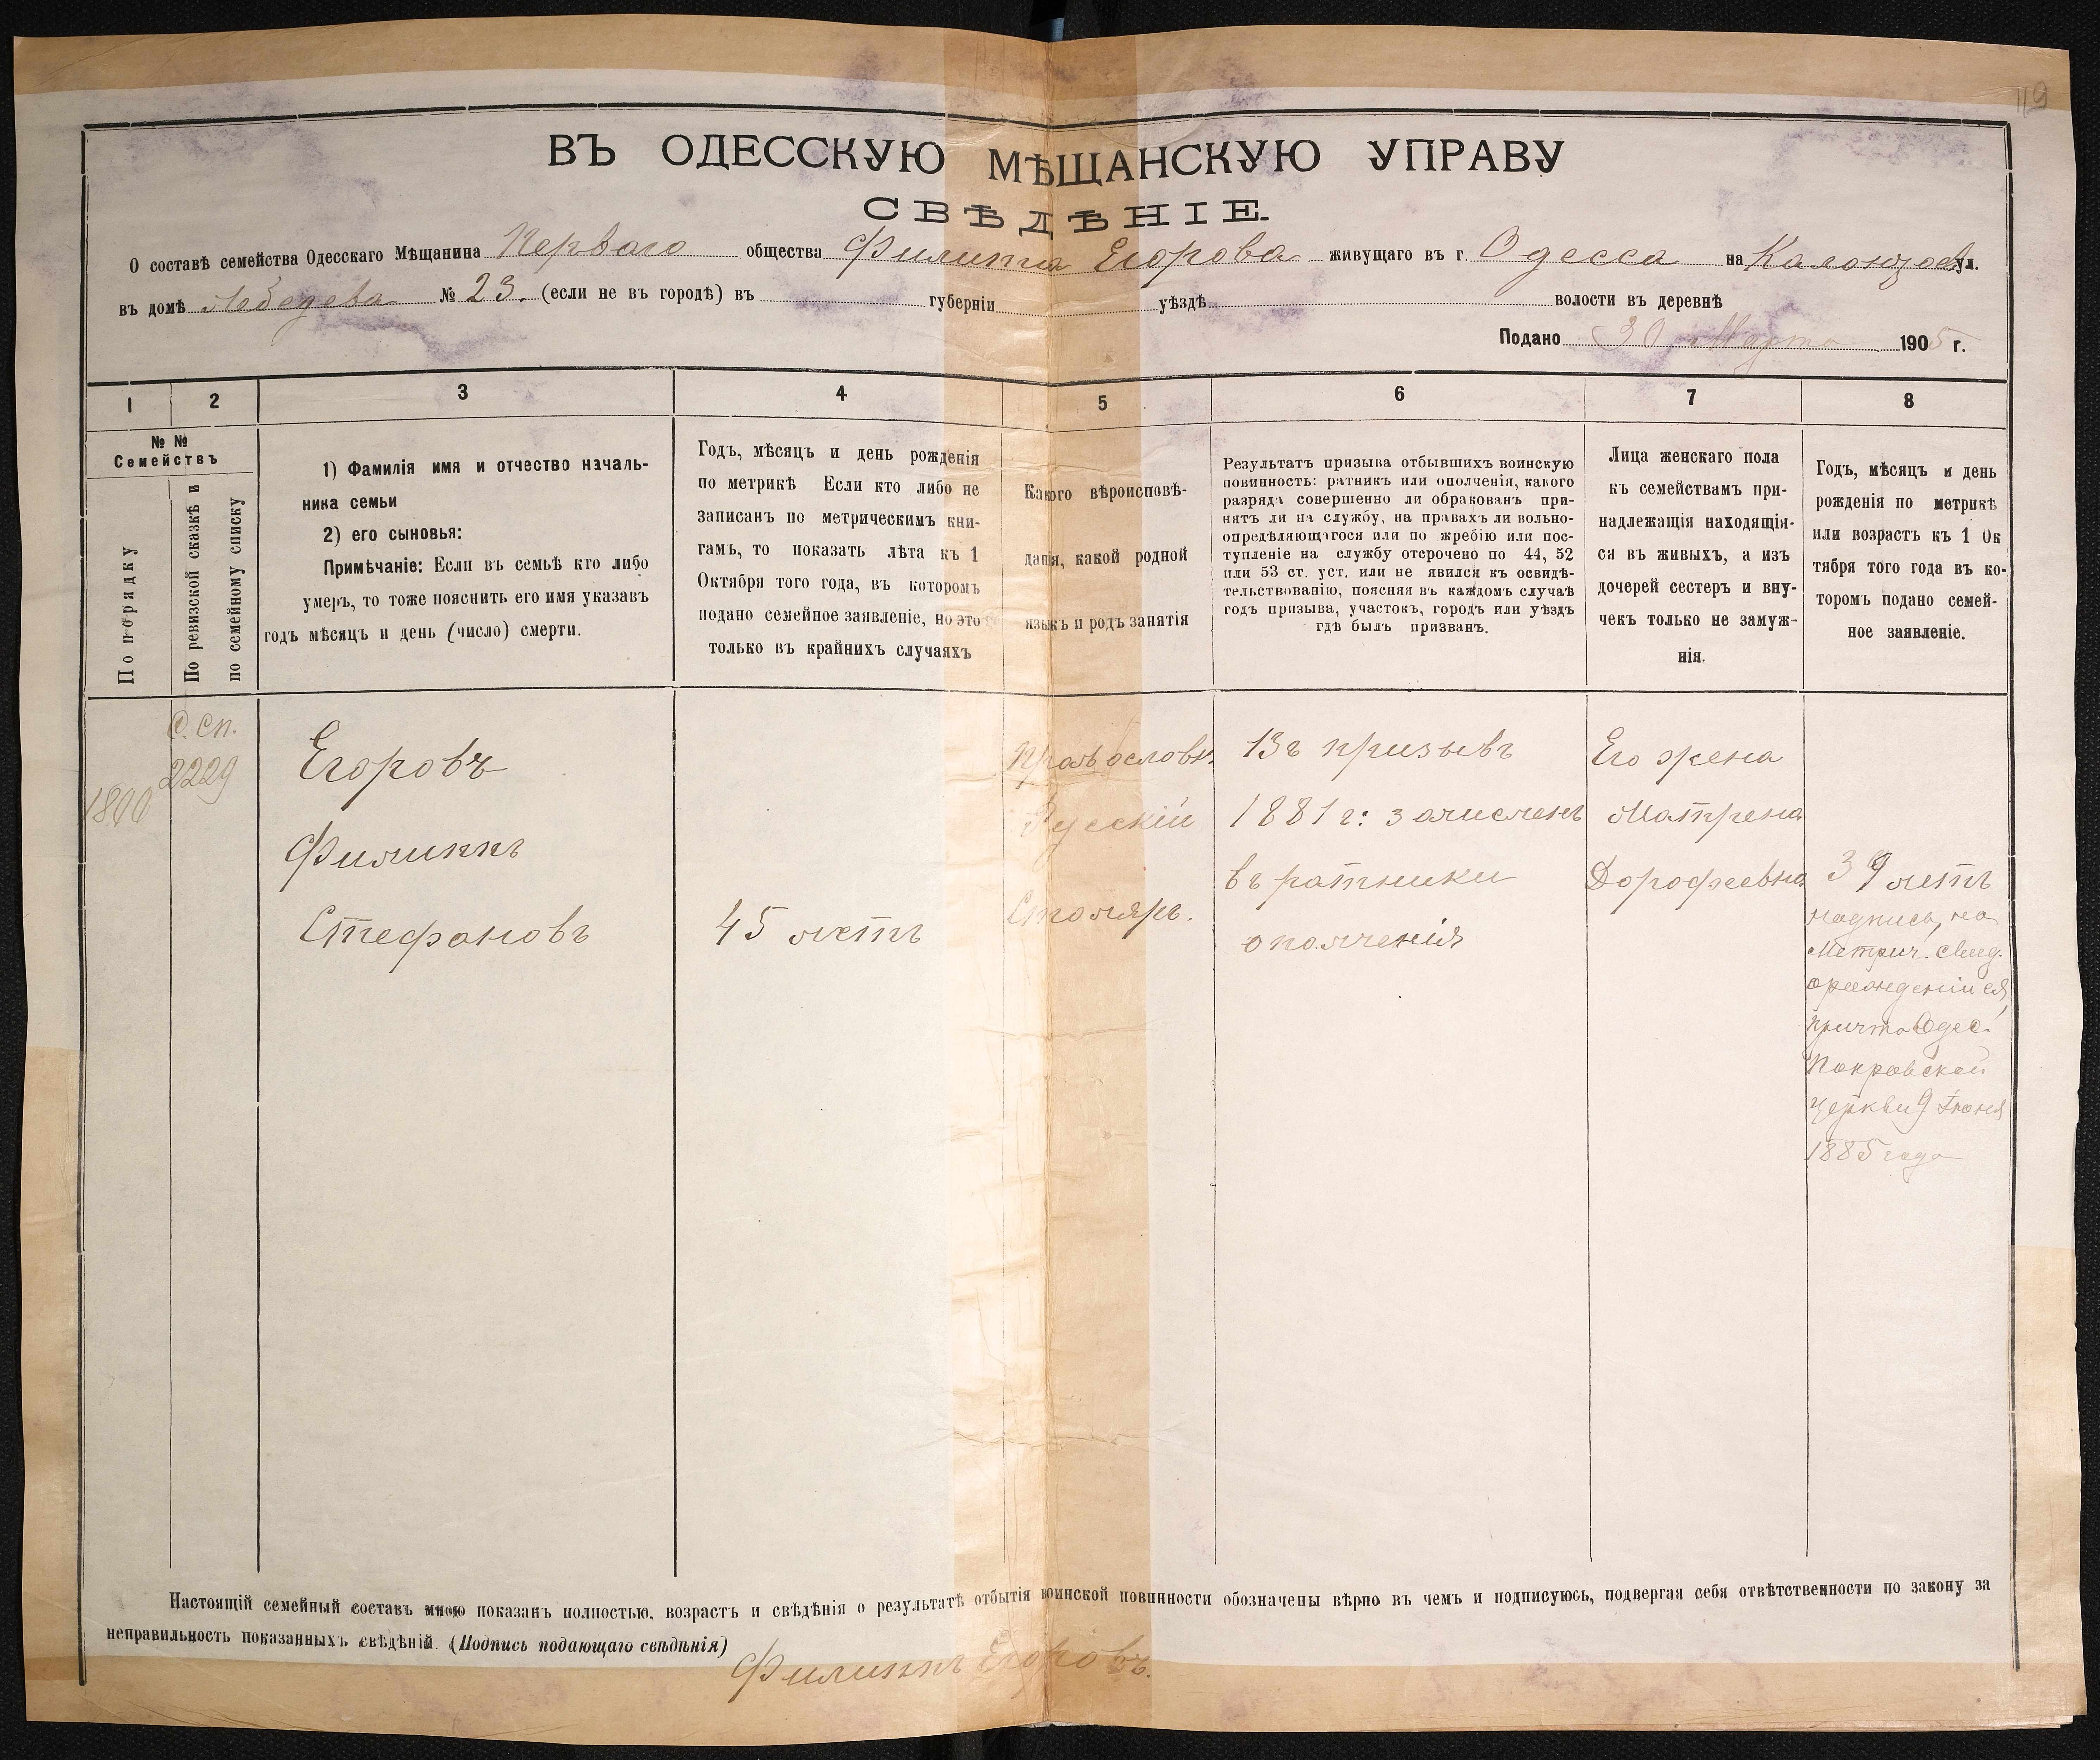 119
ВЪ ОДЕССКУЮ МѢЩАНСКУЮ УПРАВУ
СВѢДѢНІЕ.
О составѣ семейства Одесскаго Мѣщанина Перваго общества Филиппа Егорова живущаго въ г. Одесса на ул.
въ домѣ Лебедева № 23. (если не въ городѣ) въ губерніи уѣздѣ волости въ деревнѣ
Подано 30 Марта 1905 г.
1 2 3 4 5 6 7 8
№ №
Семействъ
По порядку
По ревизской сказкѣ и
по семейному списку
1) Фамилія имя и отчество началь-
ника семьи
2) его сыновья:
Примѣчаніе: Если въ семьѣ кто либо
умеръ, то тоже пояснить его имя указавъ
годъ мѣсяцъ и день (число) смерти.
Годъ, мѣсяцъ и день рожденія
по метрикѣ Если кто либо не
записанъ по метрическимъ кни-
гамъ, то показать лѣта къ 1
Октября того года, въ которомъ
подано семейное заявленіе, но это
только въ крайнихъ случаяхъ
Какого вѣроисповѣ-
данія, какой родной
языкъ и родъ занятія
Результатъ призыва отбывшихъ воинскую
повинность: ратникъ или ополченія, какого
разряда совершенно ли обракованъ при-
нятъ ли на службу, на правахъ ли вольно-
опредѣляющагося или по жребію или пос-
тупленіе на службу отсрочено по 44, 52
или 53 ст. уст. или не явился къ освидѣ-
тельствованію, поясняя въ каждомъ случаѣ
годъ призыва, участокъ, городъ или уѣздъ
гдѣ былъ призванъ.
Лица женскаго пола
къ семействамъ при-
надлежащія находящія-
ся въ живыхъ, а изъ
дочерей сестеръ и вну-
чекъ только не замуж-
нія.
Годъ, мѣсяцъ и день
рожденія по метрикѣ
или возрастъ къ 1 Ок
тября того года въ ко-
торомъ подано семей-
ное заявленіе.
1800
С. сп.
2229
Егоровъ
Филиппъ
Стефановъ
45 летъ
Православн.
Русскій
Столяръ.
13й призывъ
1881 г: зачисленъ
въ ратники
ополченія
Его жена
Матрена
Дорофеевна
39 летъ
надпись, на
Метрич. свид.
о рожденіи ея,
причта Одес.
Покровской
церкви 9 Іюня
1885 года
Настоящій семейный составъ мною показанъ полностью, возрастъ и свѣдѣнія о результатѣ отбытія воинской повинности обозначены вѣрно въ чемъ и подписуюсь, подвергая себя отвѣтственности по закону за
неправильность показанныхъ свѣдѣній. (Подпись подающаго свѣдѣнія)
Филиппъ Егоровъ.